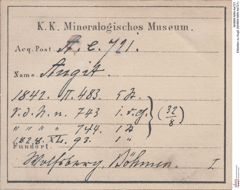 K. K. Mineralogisches Museum.
Acq. Post. A. C. 721.
Name Augit.
1842. II. 483. 5 St.
743
" " " " 744. 1 St
XL. 93. 1 "
(32/8)
Fundort
Wolfsberg, Böhmen I.